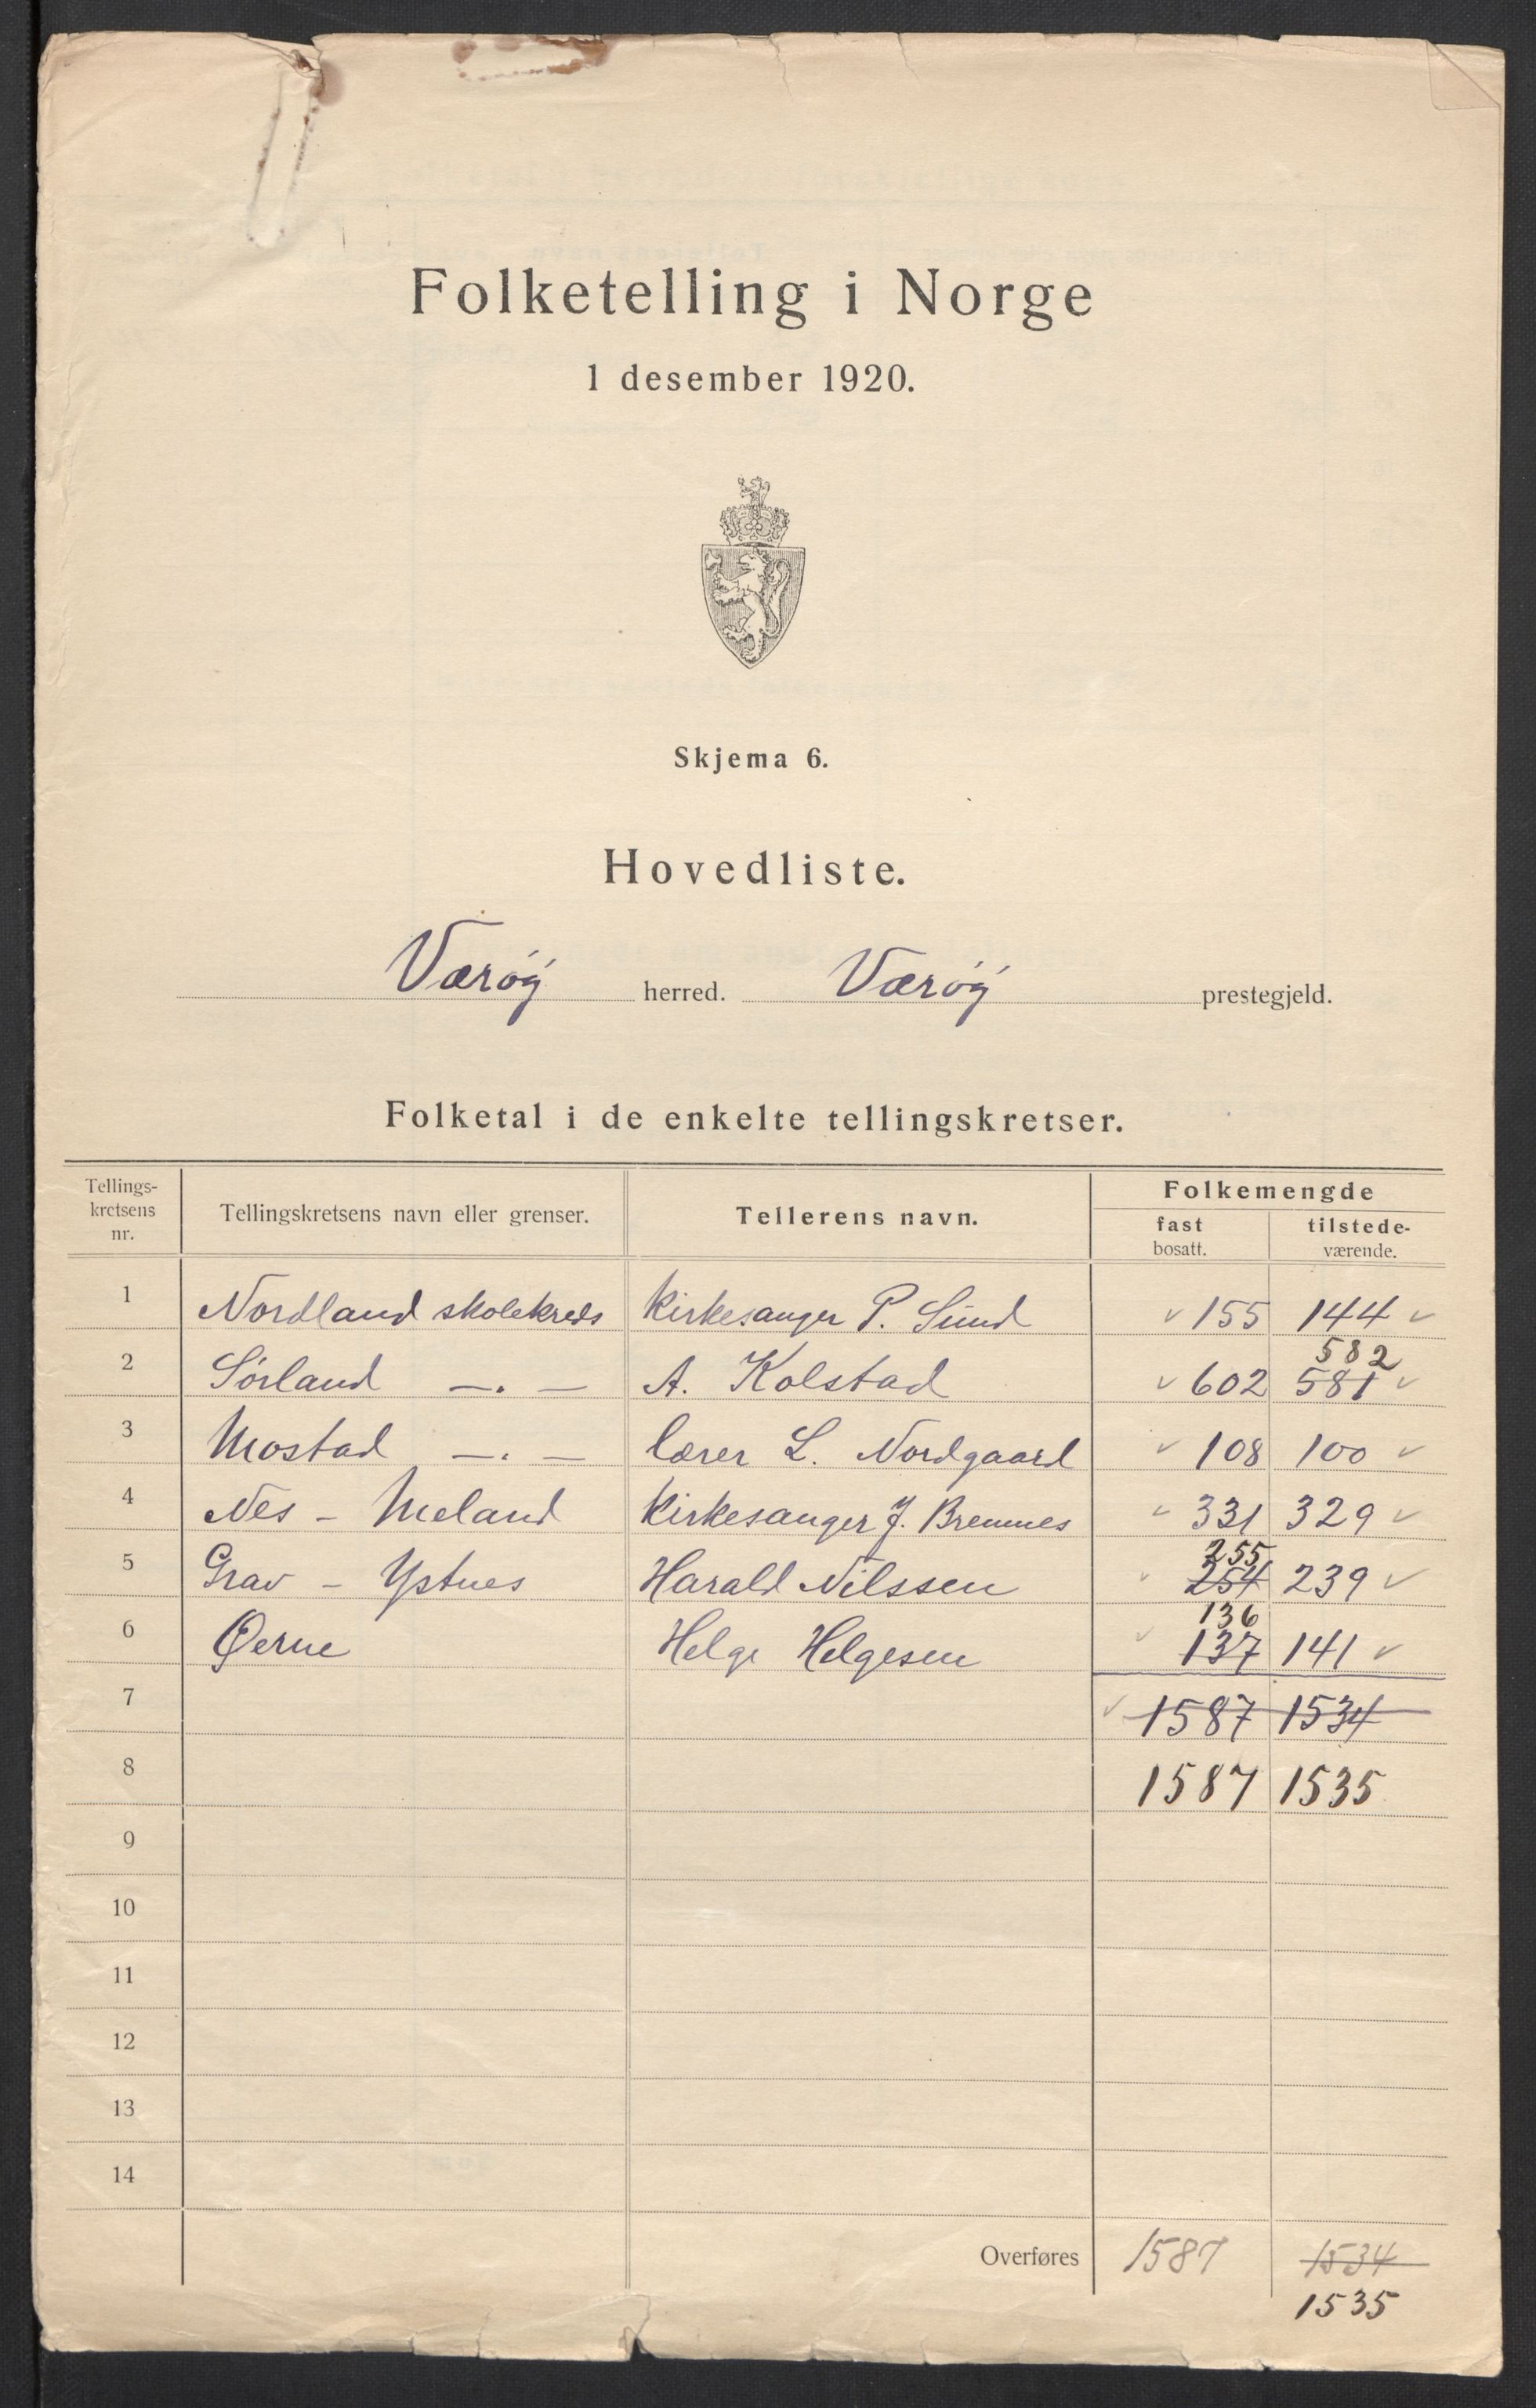 Folketelling i Norge
1 desember 1920.
Skjema 6.
Hovedliste.
Værøy herred. Værøy prestegjeld.
Folketal i de enkelte tellingskretser.
Tellings-
kretsens
nr.
Tellingskretsens navn eller grenser.
Tellerens navn.
Folkemengde
fast
bosatt.
tilstede-
værende.
1 Nordland skolekreds Kirkesanger P. Sund ✓ 155 144 ✓
582
2 Sørland —.— A. Kolstad ✓ 602 581 ✓
3 Mostad —.— lærer L. Nordgaard ✓ 108 100 ✓
4 Nes - Meland Kirkesanger J. Bremnes ✓ 331 329 ✓
255
5 Grav - Ystnes Harald Nilssen ✓ 254 239 ✓
136
6 Øerne Helge Helgesen ✓ 137 141 ✓
7 ✓ 1587 1534
8 1587 1535
9
10
11
12
13
14
Overføres 1587 1534
1535